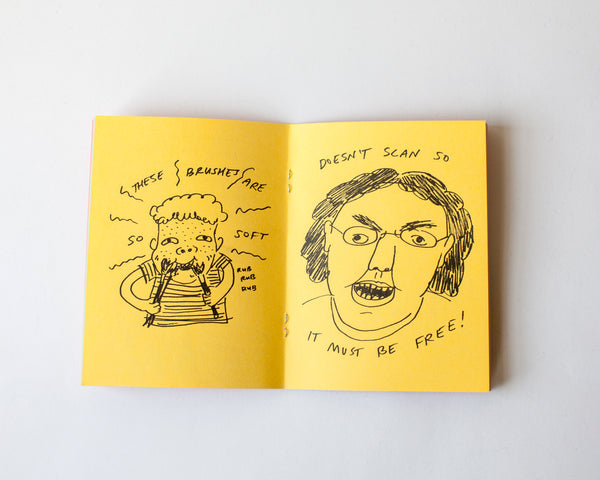 THESE BRUSHES ARE
SO SOFT
RUB
RUB
RUB
DOESN'T SCAN SO
IT MUST BE FREE!